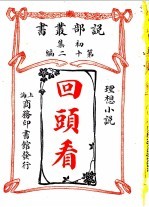 說部叢書
初集
第十二編
理想小說
回頭看
上海
商務印書館發行